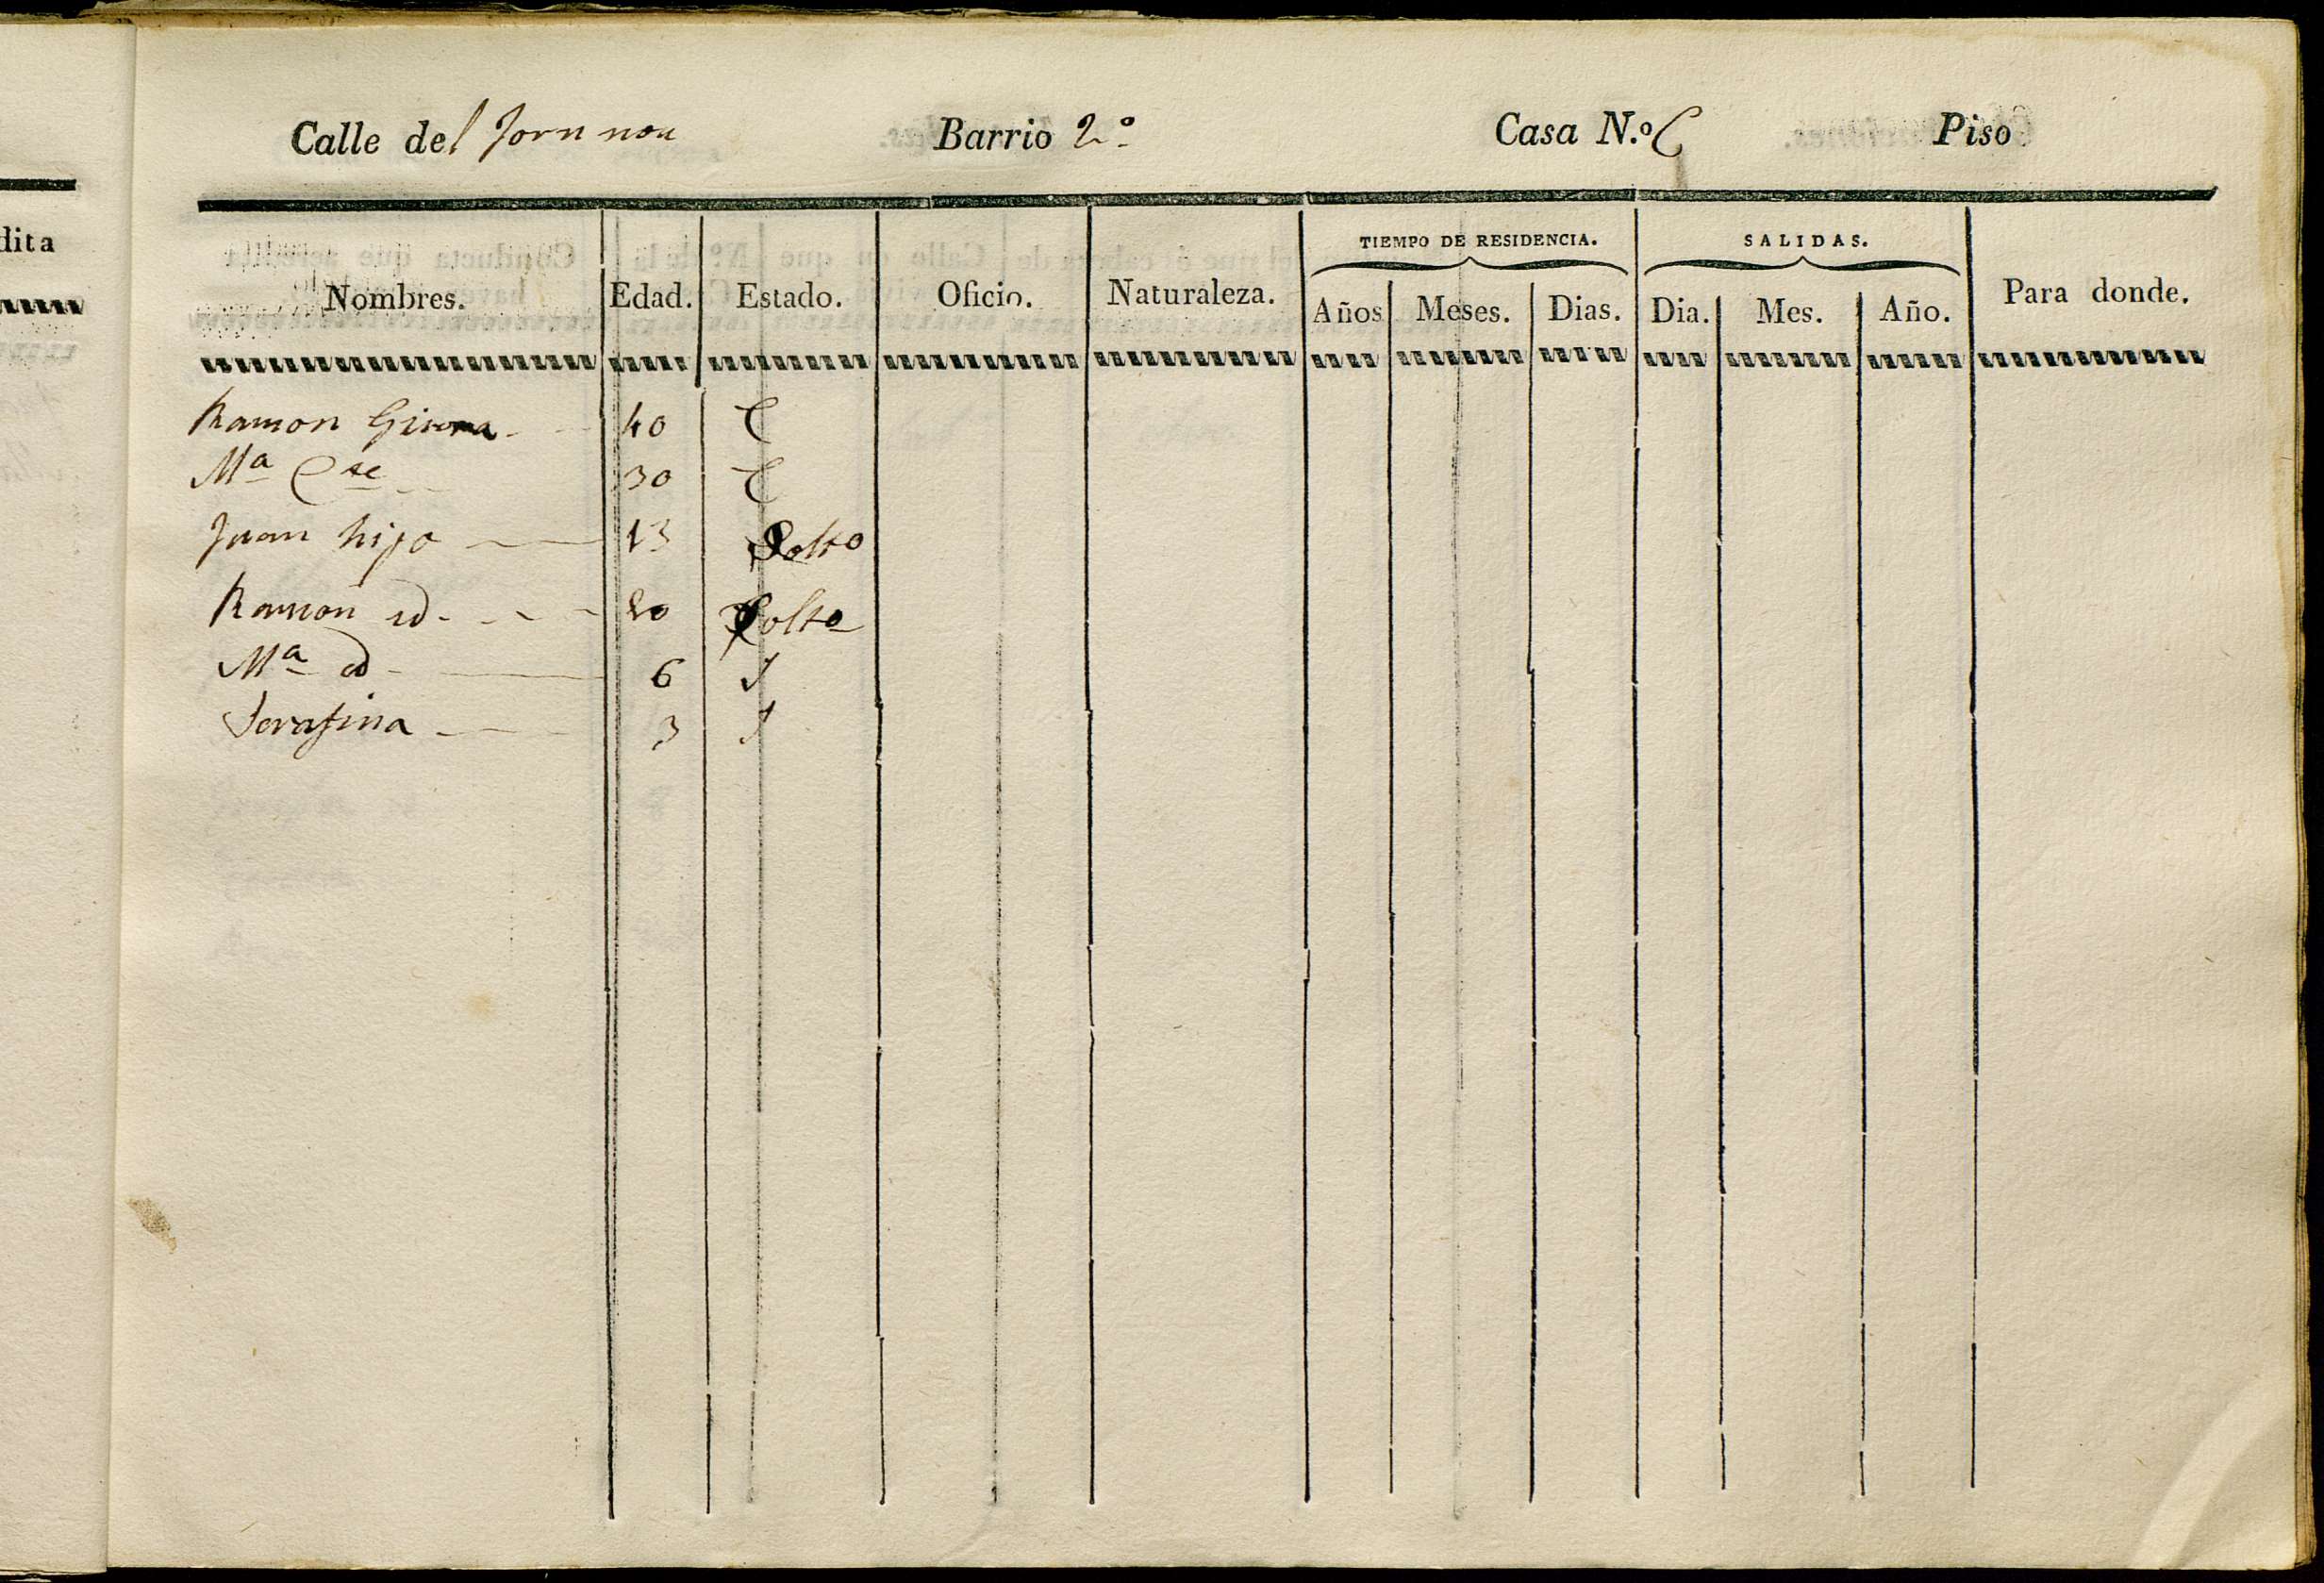 dita
Calle del forn nou Barrio 2.º Casa N.º 6 Piso
TIEMPO DE RESIDENCIA. SALIDAS.
Nombres. Edad. Estado. Oficio. Naturaleza. Años Meses. Dias. Dia. Mes. Año. Para donde.
Ramon Girona 40 C
Mª 30 C
Juan hijo 13 Solto
Ramon id. 20 Solto
Mª id 6 S
Serafina 3 S